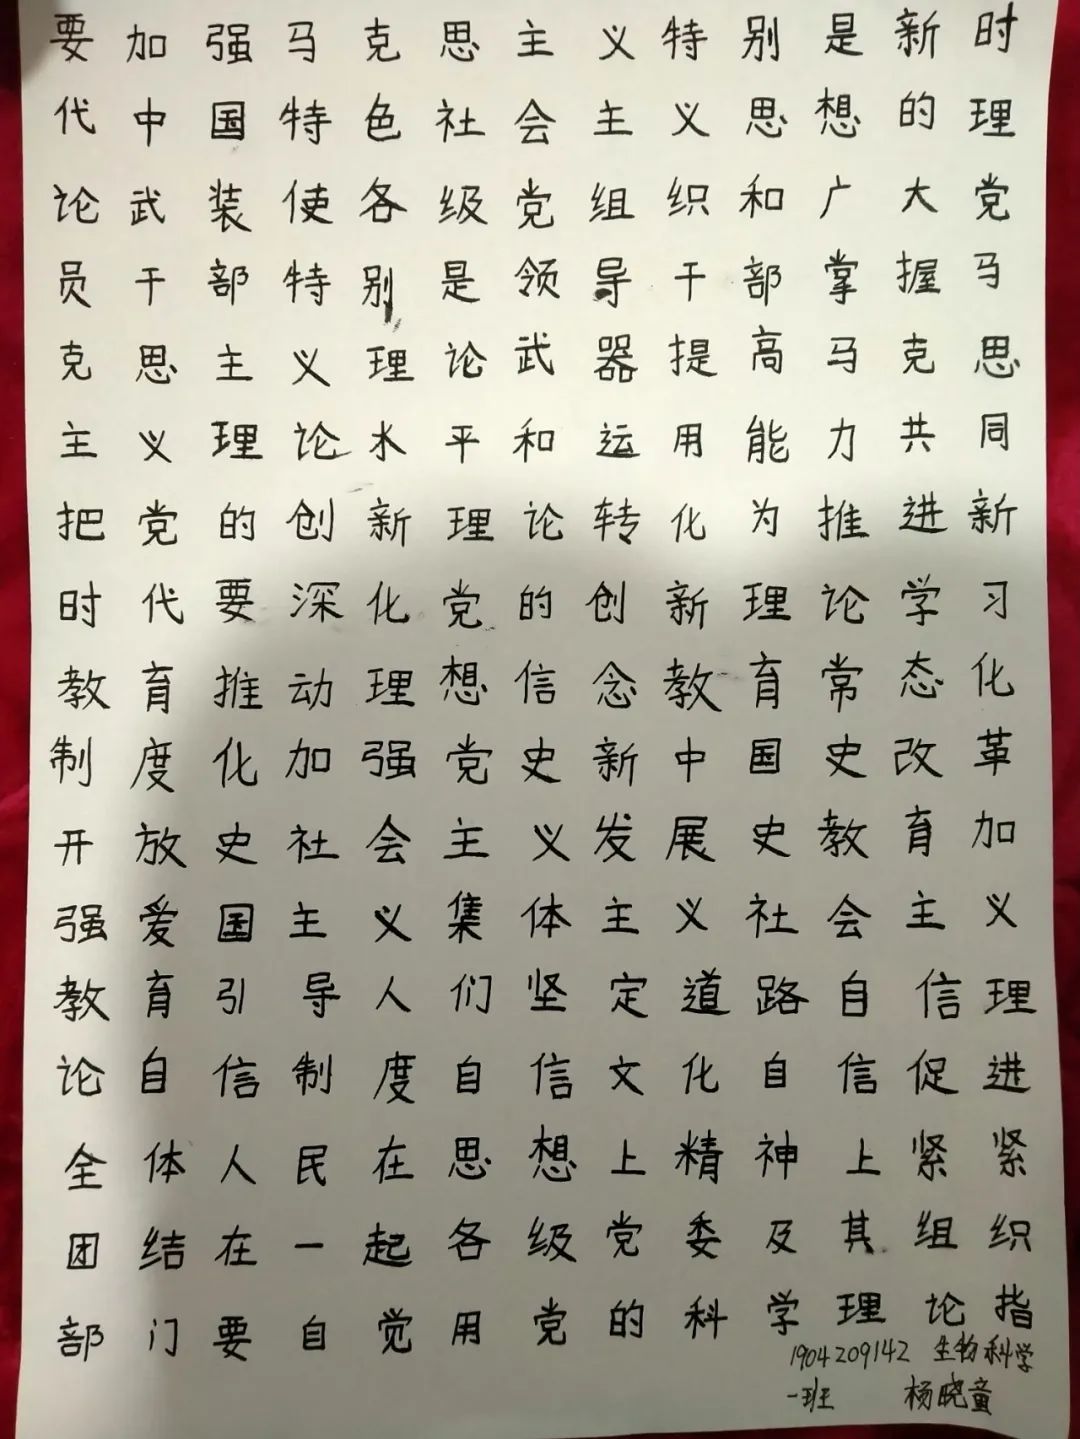 要加强马克思主义特别是新时
代中国特色社会主义思想的理
论武装使各级党组织和广大党
员干部特别是领导干部掌握马
克思主义理论武器提高马克思
主义理论水平和运用能力共同
把党的创新理论转化为推进新
时代要深化党的创新理论学习
教育推动理想信念教育常态化
制度化加强党史新中国史改革
开放史社会主义发展史教育加
强爱国主义集体主义社会主义
教育引导人们坚定道路自信理
论自信制度自信文化自信促进
全体人民在思想上精神上紧紧
团结在一起各级党委及其组织
部门要自觉用党的科学理论指
1904209142 生物科学
一班 杨晓童